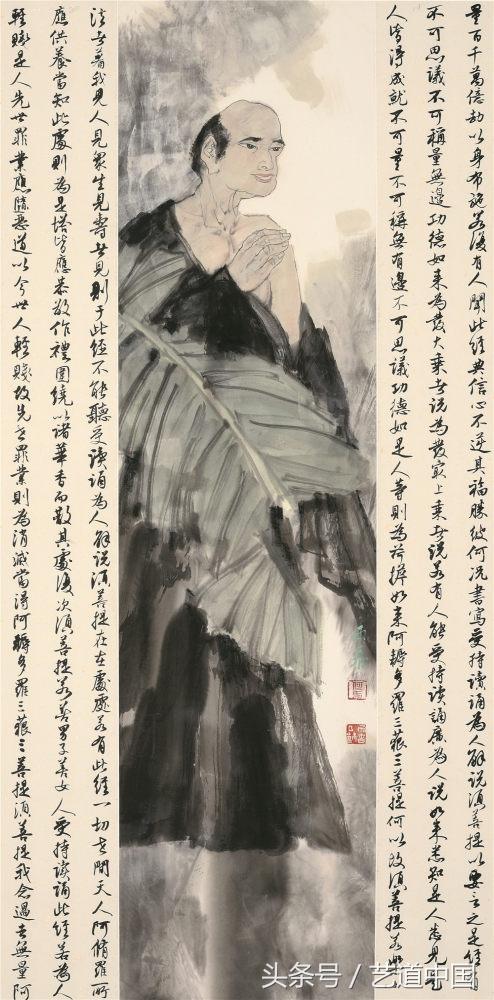 量百千萬億劫以身布施若復有人聞此經典信心不逆其福勝彼何況書寫受持讀誦為人解說須菩提以要言之是經有
不可思議不可稱量無邊功德如來為發大乘者說為發最上乘者說若有人能受持讀誦廣為人說如來悉知是人悉見是
人皆得成就不可量不可稱無有邊不可思議功德如是人等則為荷擔如來阿耨多羅三藐三菩提何以故須菩提若樂小
法者著我見人見眾生見壽者見則于此經不能聽受讀誦為人解說須菩提在在處處若有此經一切世間天人阿脩羅所
應供養當知此處則為是塔皆應恭敬作禮圍繞以諸華香而散其處復次須菩提若善男子善女人受持讀誦此經若為人
輕賤是人先世罪業應墮惡道以今世人輕賤故先世罪業則為消滅當得阿耨多羅三藐三菩提須菩提我念過去無量阿
头条号 / 艺道中国